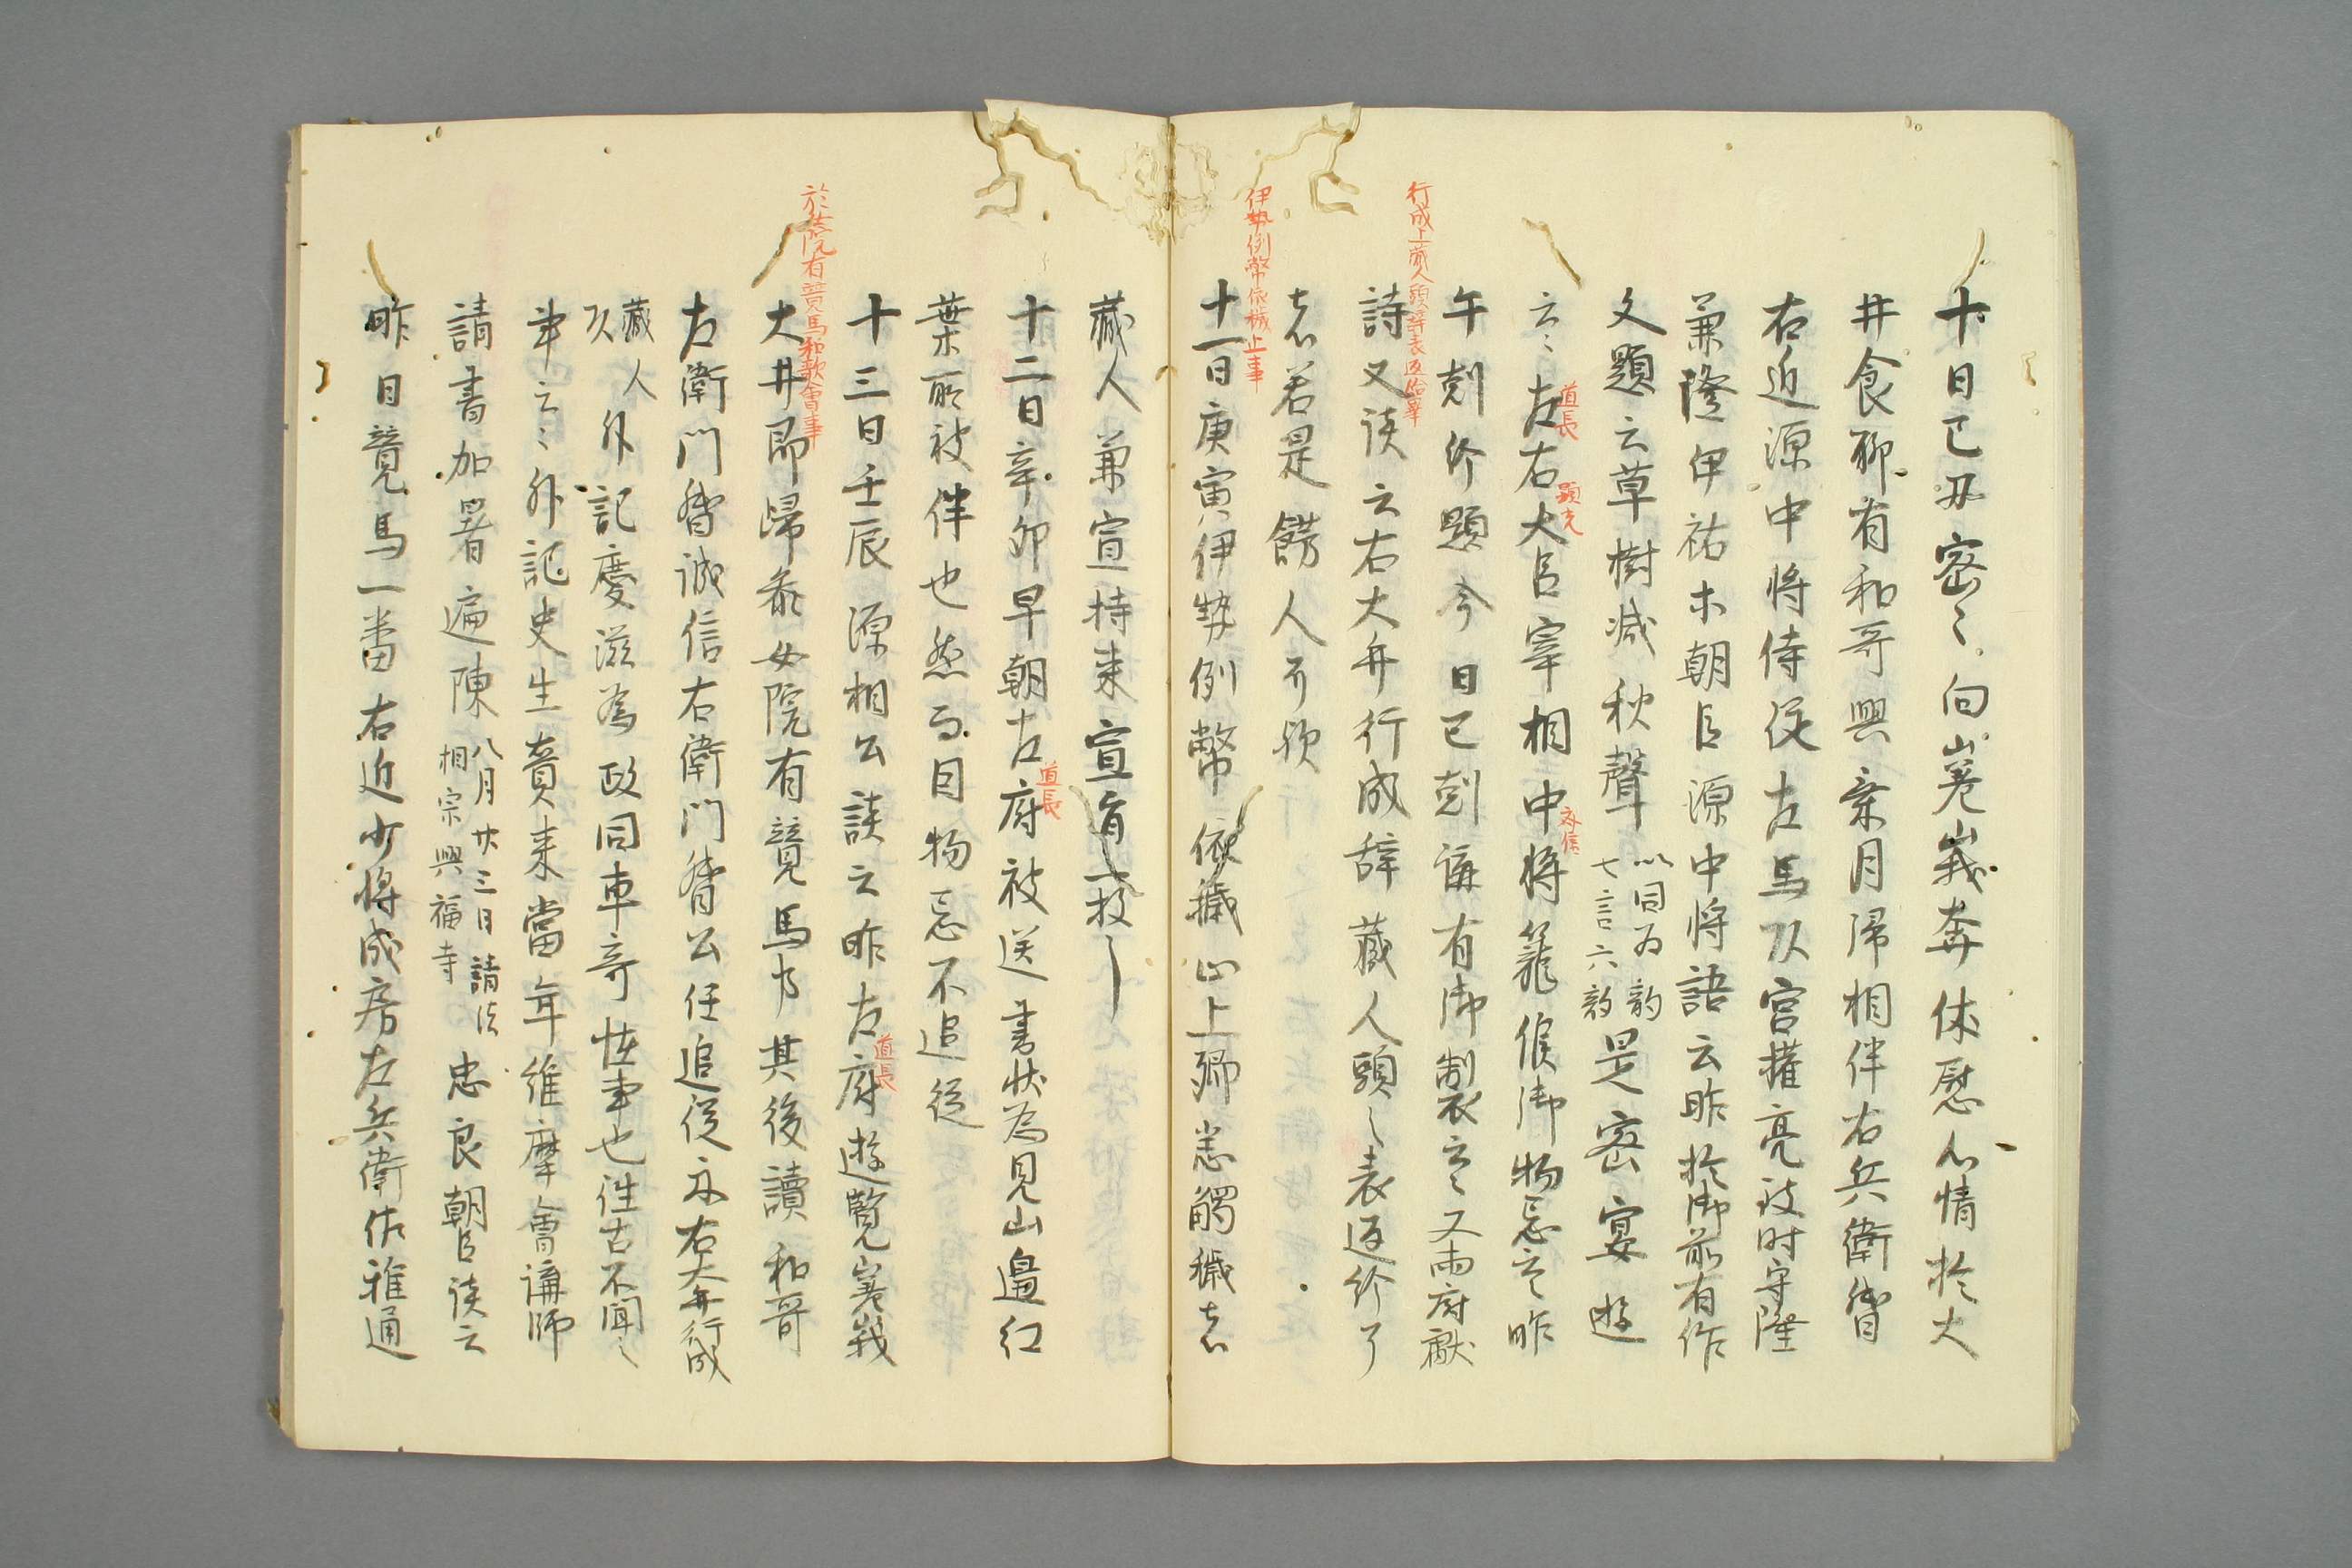 十日己丑密々向嵯峨奔休慰心情於大
井食聊有和哥興乗月帰相伴右兵衛督
右近源中将侍従左馬頭宮権亮讃岐守隆
兼隆伊祐朩朝臣源中将語云昨於御前有作
文題云草樹減秋聲
以同為韵
七言六韵
是密宴遊
云々左右大臣宰相中将籠候御物忌云々昨
道長
顕光
斉信
午剋給題今日巳剋講有御製云々又両府献
詩又談云右大弁行成辞蔵人頭々表返給了
行成上蔵人頭辞表返給事
者若是餝人事欤
十一日庚寅伊勢例幣依穢止上卿恙觸穢者
伊勢例幣依穢止事
蔵人兼宣持来宣旨一枚
十二日辛卯早朝左府被送書状為見山邊紅
道長
葉所被伴也然而目物忌不追従
十三日壬辰源相公談云昨左府遊覧嵯峨
道長
大井即帰参女院有競馬事其後讀和哥
於女院有競馬和歌會事
左衛門督誠信右衛門督公任追従亦右大弁行成
蔵人頭
外記慶滋為政同車奇恠事也往古不聞之
事云々外記史生賷来當年維摩會講師
請書加署遍陳
八月廿三日請法
相宗興福寺
忠良朝臣談云
昨日競馬一番右近少将成房左兵衛佐雅通